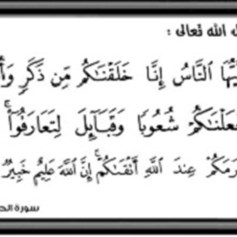 ه الله تعالى :
يُّهَا ٱلنَّاسُ إِنَّا خَلَقْنَٰكُم مِّن ذَكَرٍ وَأُ
عَلْنَٰكُمْ شُعُوبًا وَقَبَآئِلَ لِتَعَارَفُوٓا۟ ۚ
رَمَكُمْ عِندَ ٱللَّهِ أَتْقَىٰكُمْ ۚ إِنَّ ٱللَّهَ عَلِيمٌ خَبِيرٌ
سورة الح